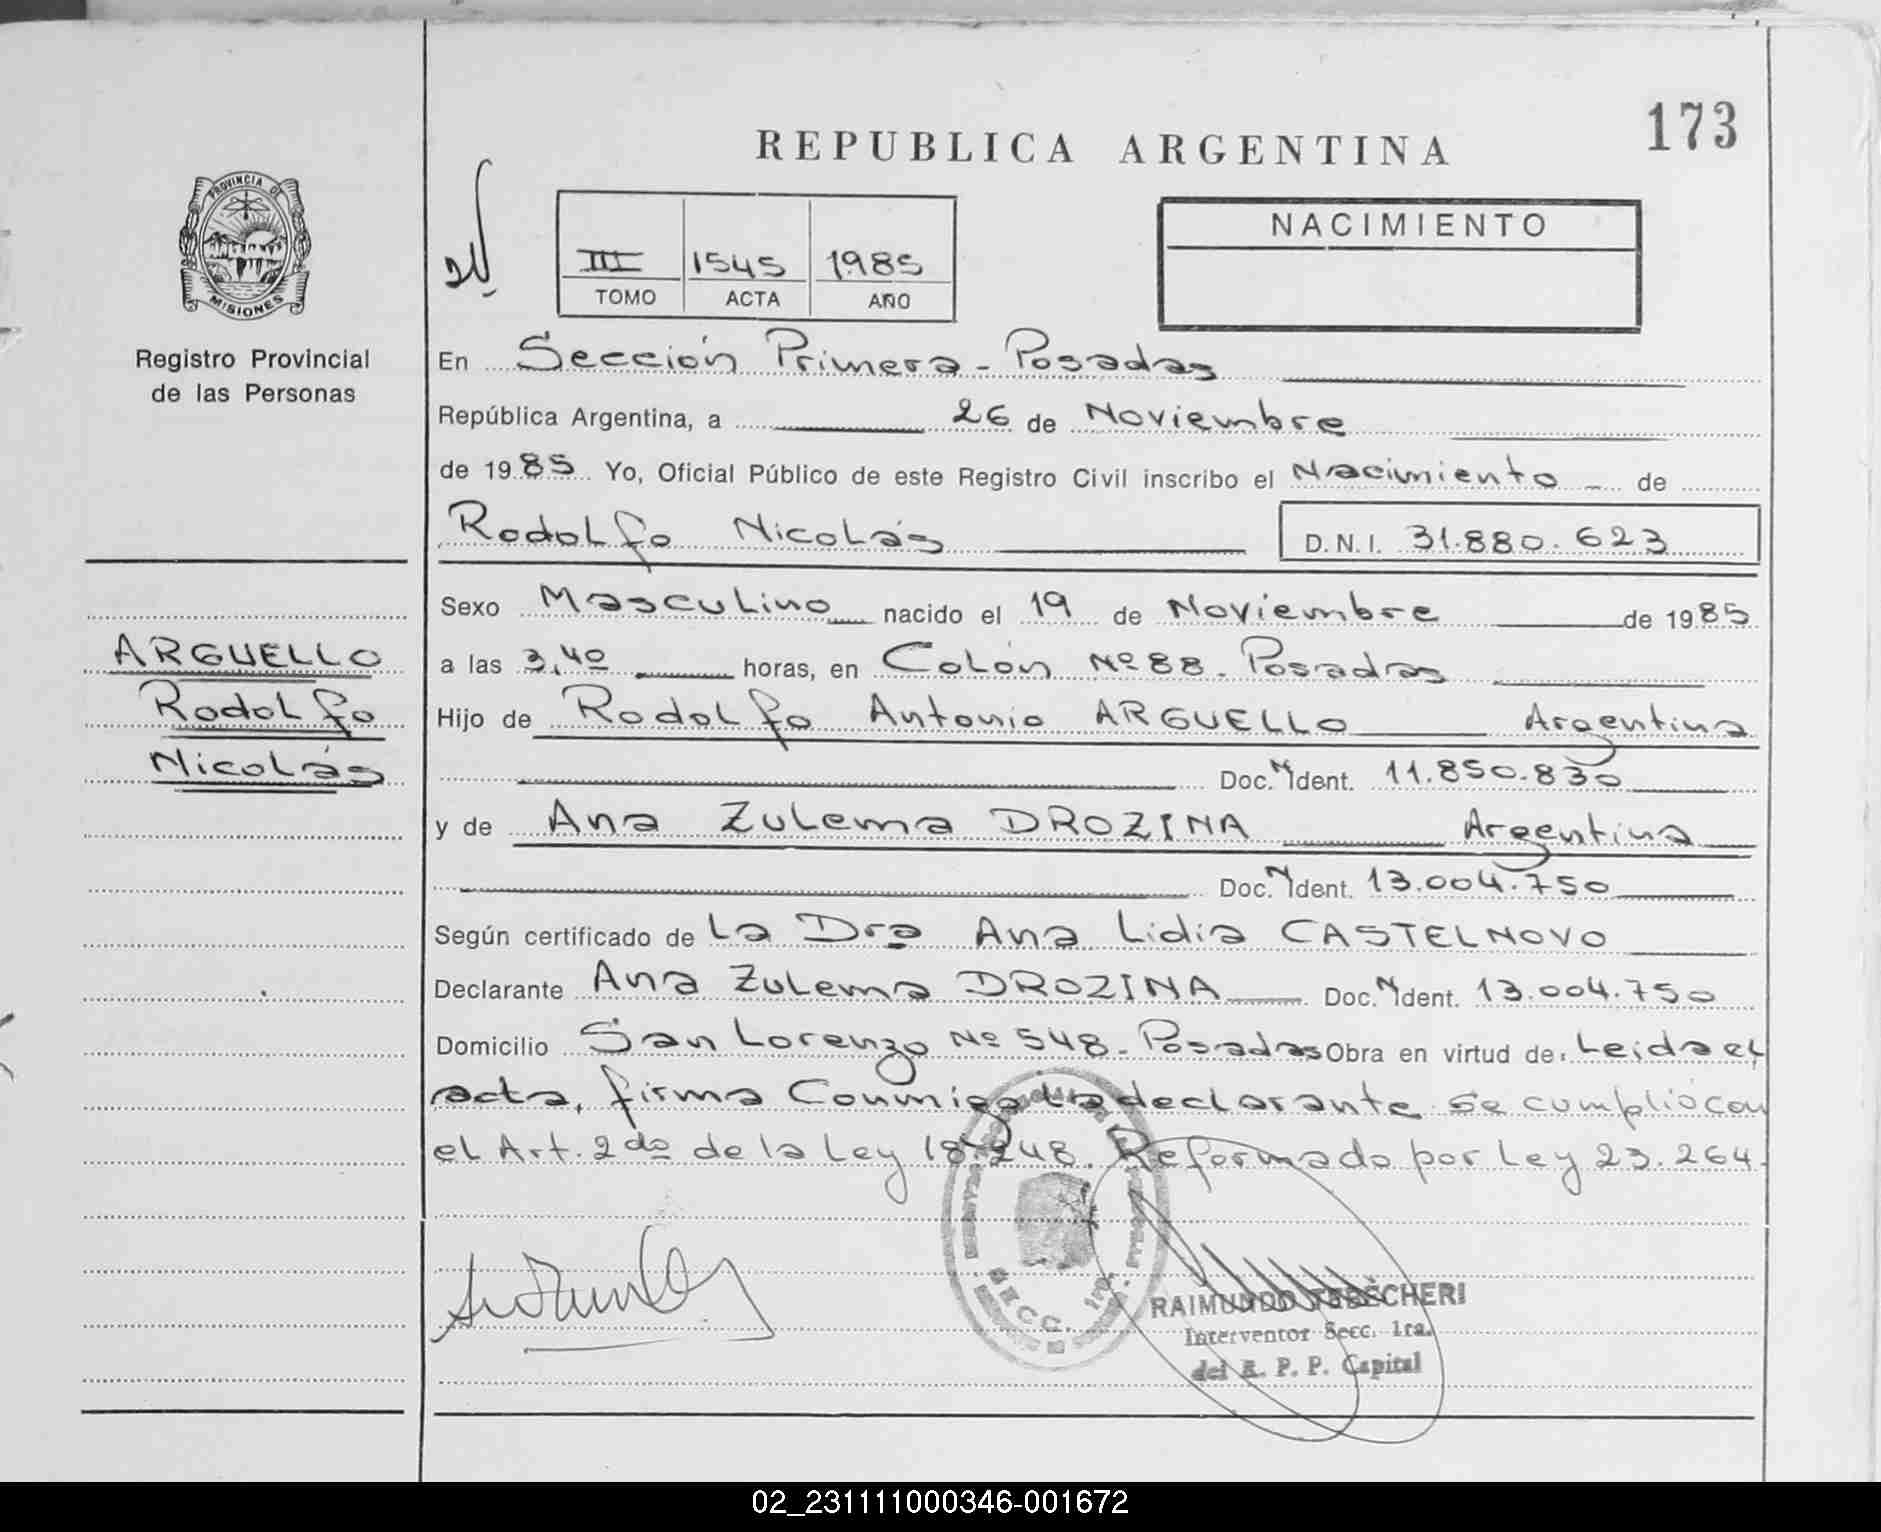 173
REPUBLICA ARGENTINA
PROVINCIA DE
MISIONES
Registro Provincial
de las Personas
III 1545 1985
TOMO ACTA AÑO
NACIMIENTO
En Sección Primera - Posadas
República Argentina, a 26 de Noviembre
de 1985 Yo, Oficial Público de este Registro Civil inscribo el Nacimiento - de
Rodolfo Nicolás D.N.I. 31.880.623
Sexo Masculino nacido el 19 de Noviembre de 1985
ARGUELLO
Rodolfo
Nicolás
a las 3,40 horas, en Colón Nº 88. Posadas
Hijo de Rodolfo Antonio ARGUELLO Argentina
Doc. N Ident. 11.850.830
y de Ana Zulema DROZINA Argentina
Doc. N Ident. 13.004.750
Según certificado de La Dra Ana Lidia CASTELNOVO
Declarante Ana Zulema DROZINA Doc. N Ident. 13.004.750
Domicilio San Lorenzo Nº 548. Posadas Obra en virtud de: Leida el
acta, firma Conmigo la declarante se cumplió con
el Art. 2do de la Ley 18.248. Reformado por Ley 23.264.
SECC. 1ra.
RAIMUNDO TEDESCHERI
Interventor Secc. 1ra.
del R. P. P. Capital
02_231111000346-001672